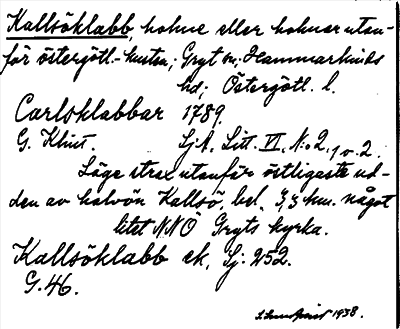 Kallsöklabb, holme eller holmar utan-
för östergötl.-kusten; Gryt sn; Hammarkinds
hd; Östergötl. l.
Carlsklabbar 1789.
G. Klint. Sj.A. Litt. VI, N:o 2, 1 o. 2.
Läge strax utanför östligaste ud-
den av halvön Kallsö, bel. 3,3 km. något
litet NNÖ Gryts kyrka.
Kallsöklabb ek, Sj: 252.
G. 46.
1938.